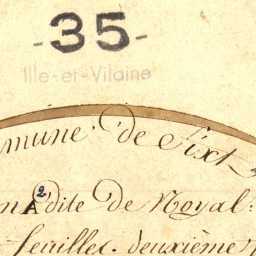 -35-
Ille-et-Vilaine
mune de Sixt
n A 2 dite de Noyal
feuilles. deuxième